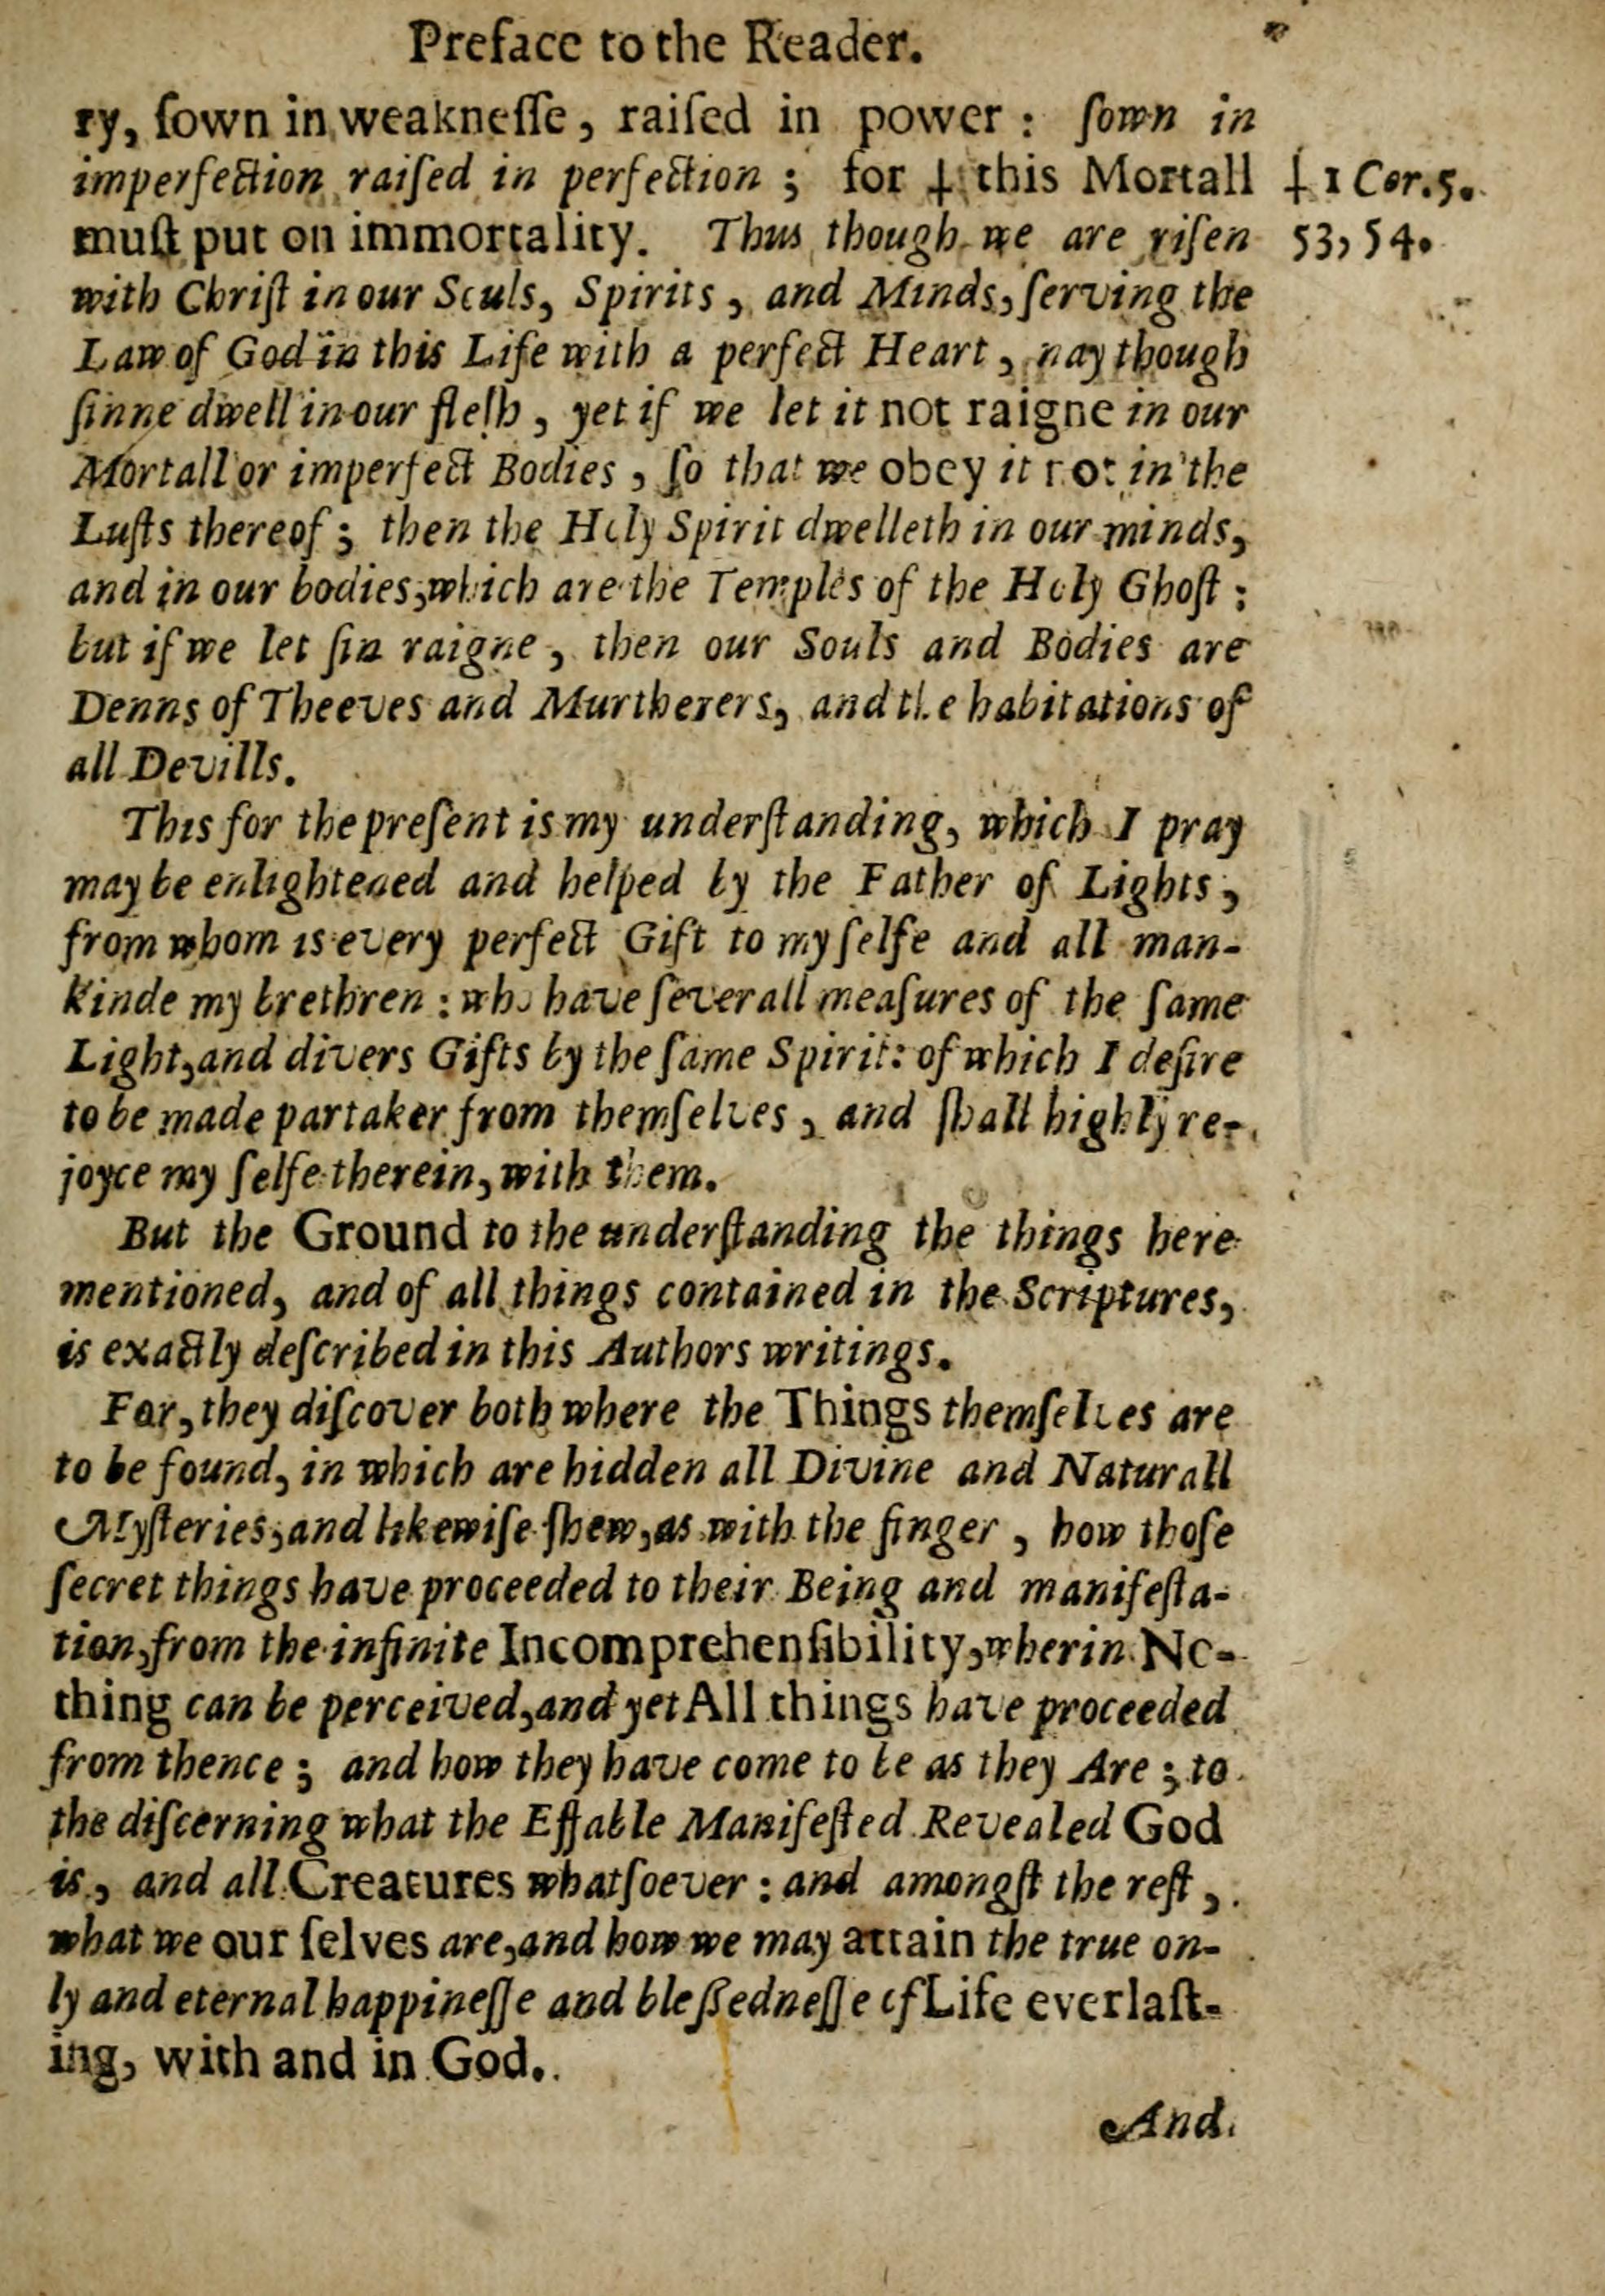 Preface to the Reader.
ry, ſown in weakneſſe, raiſed in power: ſown in
imperfection raiſed in perfection; for ‡ this Mortall
‡ 1 Cor. 5.
muſt put on immortality. Thus though we are riſen
53, 54.
with Chriſt in our Souls, Spirits, and Minds, ſerving the
Law of God in this Life with a perfect Heart, nay though
ſinne dwell in our fleſh, yet if we let it not raigne in our
Mortall or imperfect Bodies, ſo that we obey it not in the
Luſts thereof; then the Holy Spirit dwelleth in our minds,
and in our bodies, which are the Temples of the Holy Ghoſt:
but if we let ſin raigne, then our Souls and Bodies are
Denns of Theeves and Murtherers, and the habitations of
all Devills.
This for the preſent is my underſtanding, which I pray
may be enlightened and helped by the Father of Lights,
from whom is every perfect Gift to my ſelfe and all man-
kinde my brethren: who have ſeverall meaſures of the ſame
Light, and divers Gifts by the ſame Spirit: of which I deſire
to be made partaker from themſelves, and ſhall highly re-
joyce my ſelfe therein, with them.
But the Ground to the underſtanding the things here
mentioned, and of all things contained in the Scriptures,
is exactly deſcribed in this Authors writings.
For, they diſcover both where the Things themſelves are
to be found, in which are hidden all Divine and Naturall
Myſteries, and likewiſe ſhew, as with the finger, how thoſe
ſecret things have proceeded to their Being and manifeſta-
tion, from the infinite Incomprehenſibility, wherin No-
thing can be perceived, and yet All things have proceeded
from thence; and how they have come to be as they Are; to
the diſcerning what the Effable Manifeſted Revealed God
is, and all Creatures whatſoever: and amongſt the reſt,
what we our ſelves are, and how we may attain the true on-
ly and eternal happineſſe and bleſſedneſſe of Life everlaſt-
ing, with and in God.
And